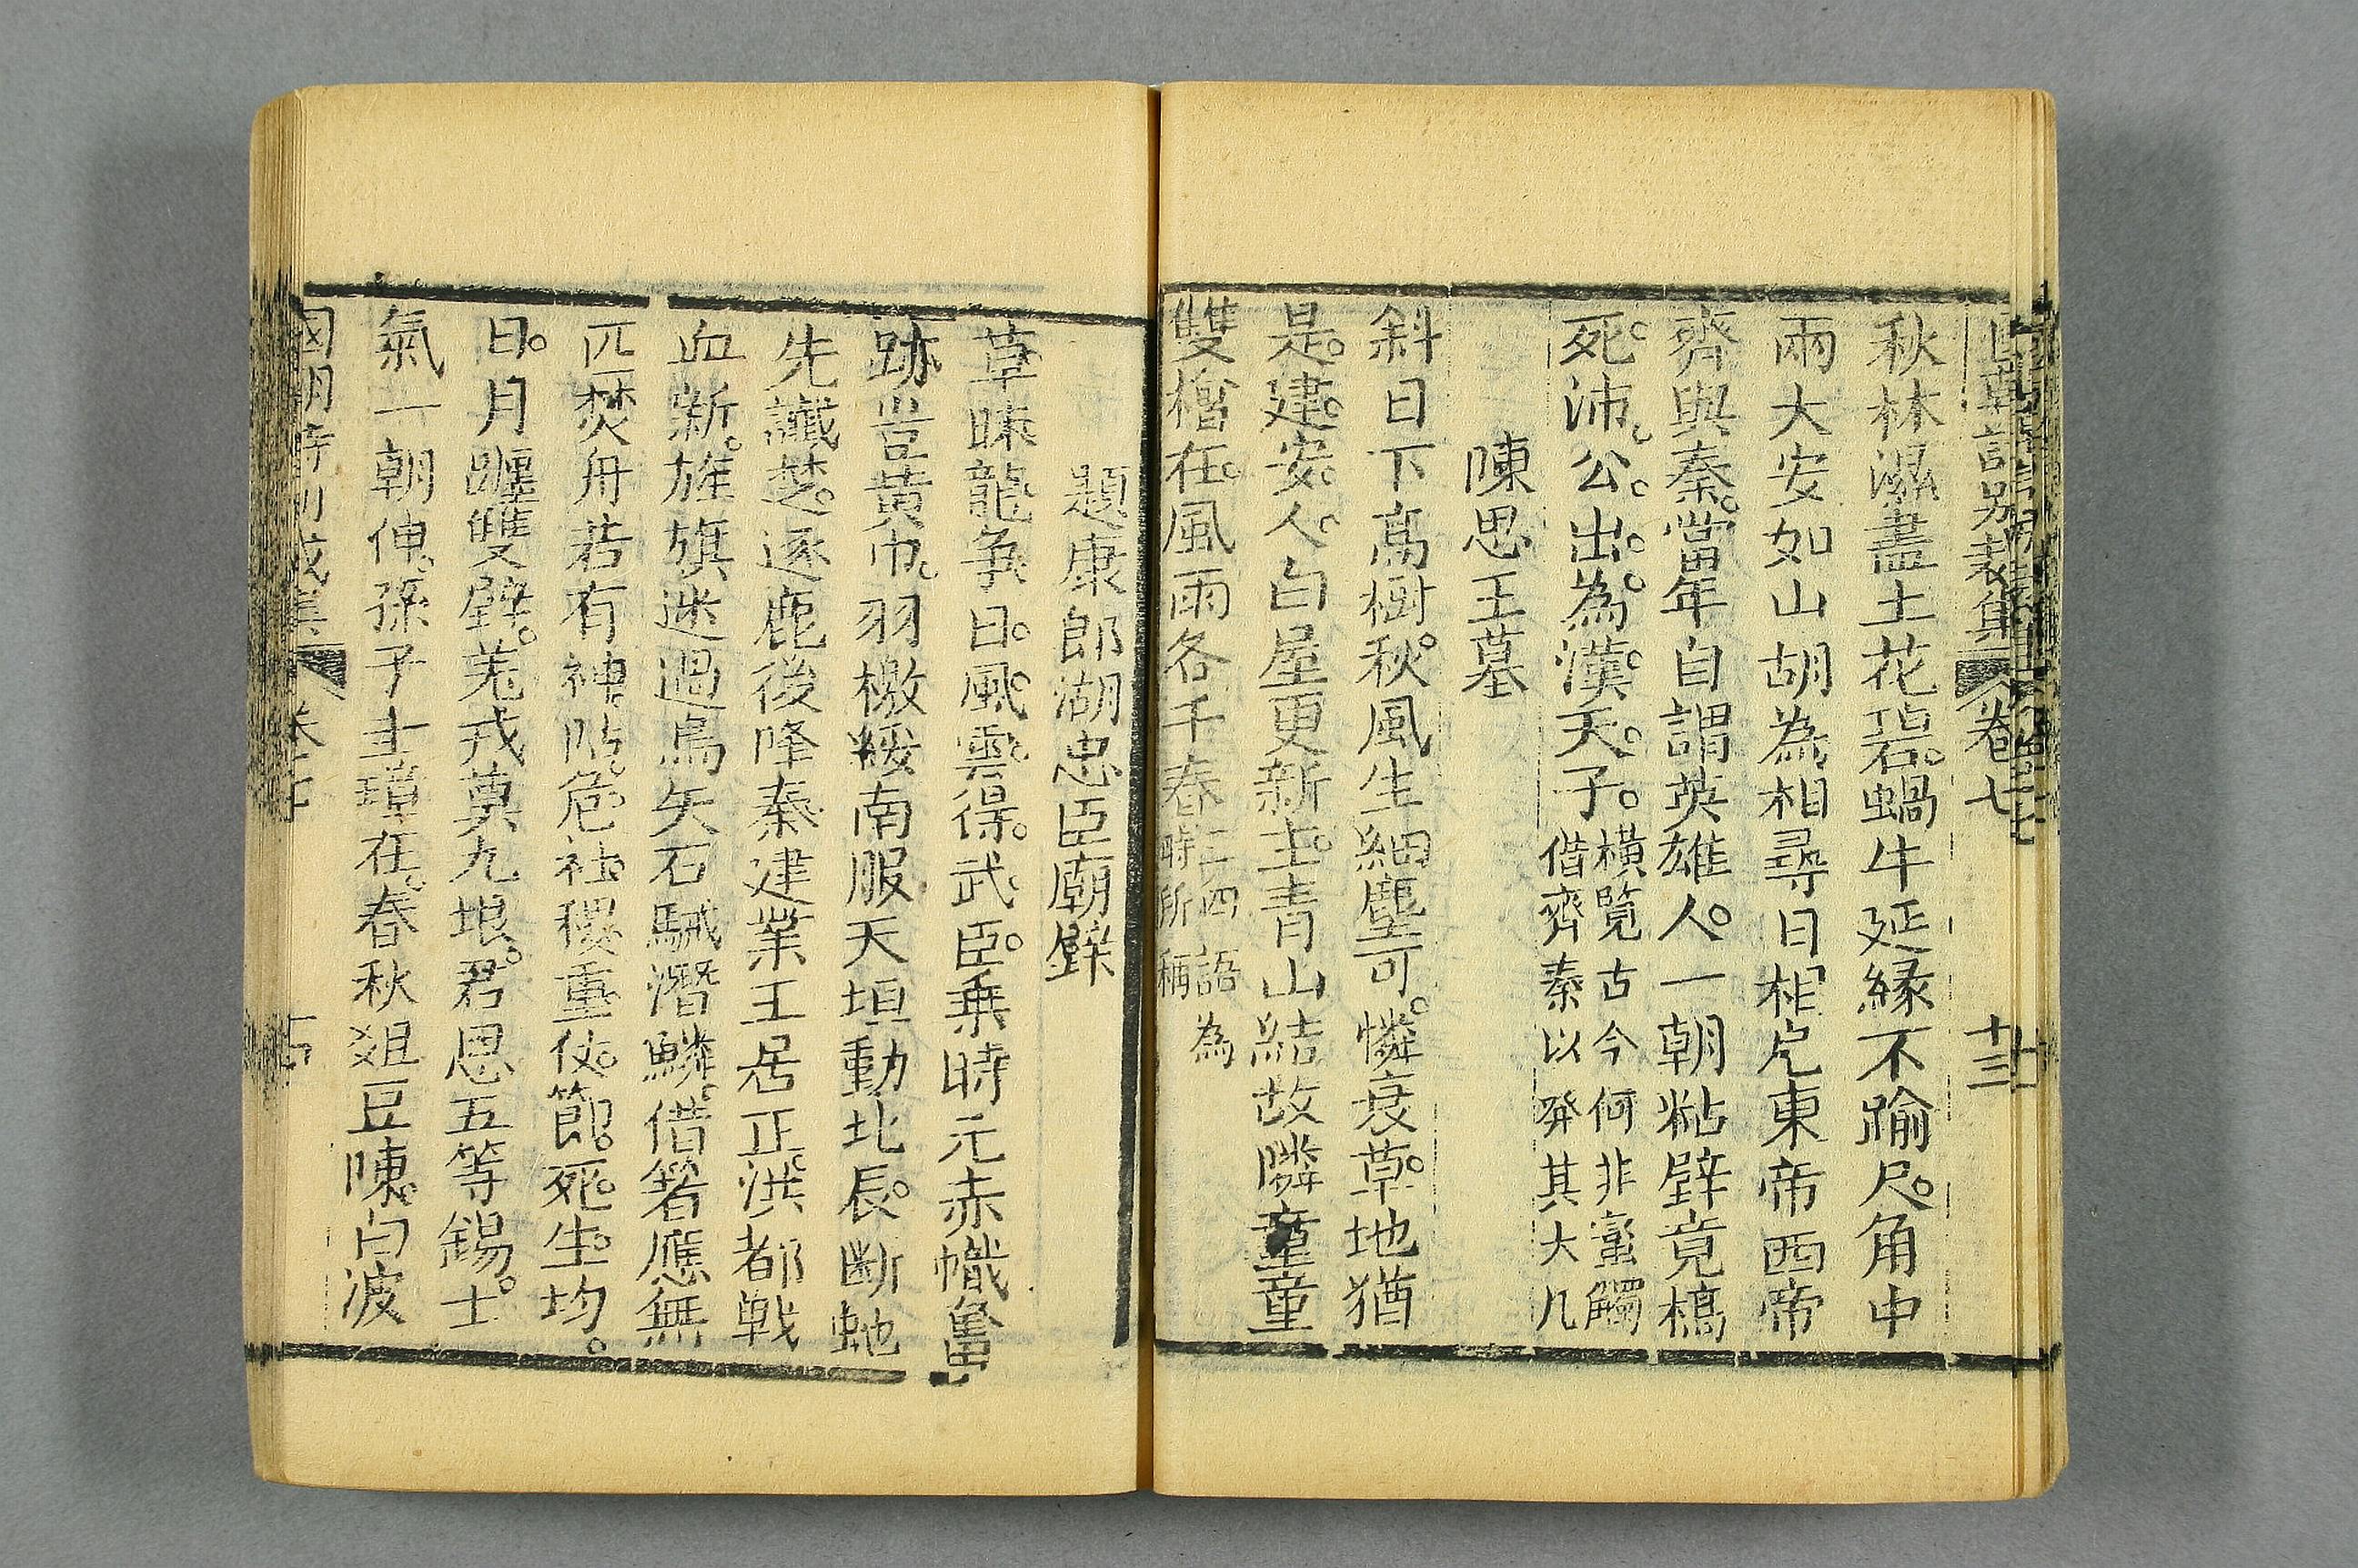 國朝詩別裁集 卷七 十三
秋林濕盡土花碧蝸牛延縁不踰尺角中
兩大安如山胡為相尋日相戹東帝西帝
齊與秦當年自謂英雄人一朝粘壁竟槁
死沛公出為漢天子橫覧古今何非蠻觸
借齊秦以發其大凡
陳思王墓
斜日下高樹秋風生細塵可憐衰草地猶
是建安人白屋更新主青山結故隣童童
雙檜在風雨各千春三四語為
時所稱
題康郎湖忠臣廟壁
草昧龍爭日風雲得武臣乗時元赤幟奮
跡豈黄巾羽檄綏南服天垣動北辰斷虵
先讖楚逐鹿後降秦建業王居正洪都戰
血新旌旗迷過鳥矢石駴潛鱗借箸應無
匹焚舟若有神阽危社稷重伏節死生均
日月躔雙壁羌戎奠九垠君恩五等錫士
氣一朝伸孫子圭璋在春秋俎豆陳白波
國朝詩別裁集 卷七